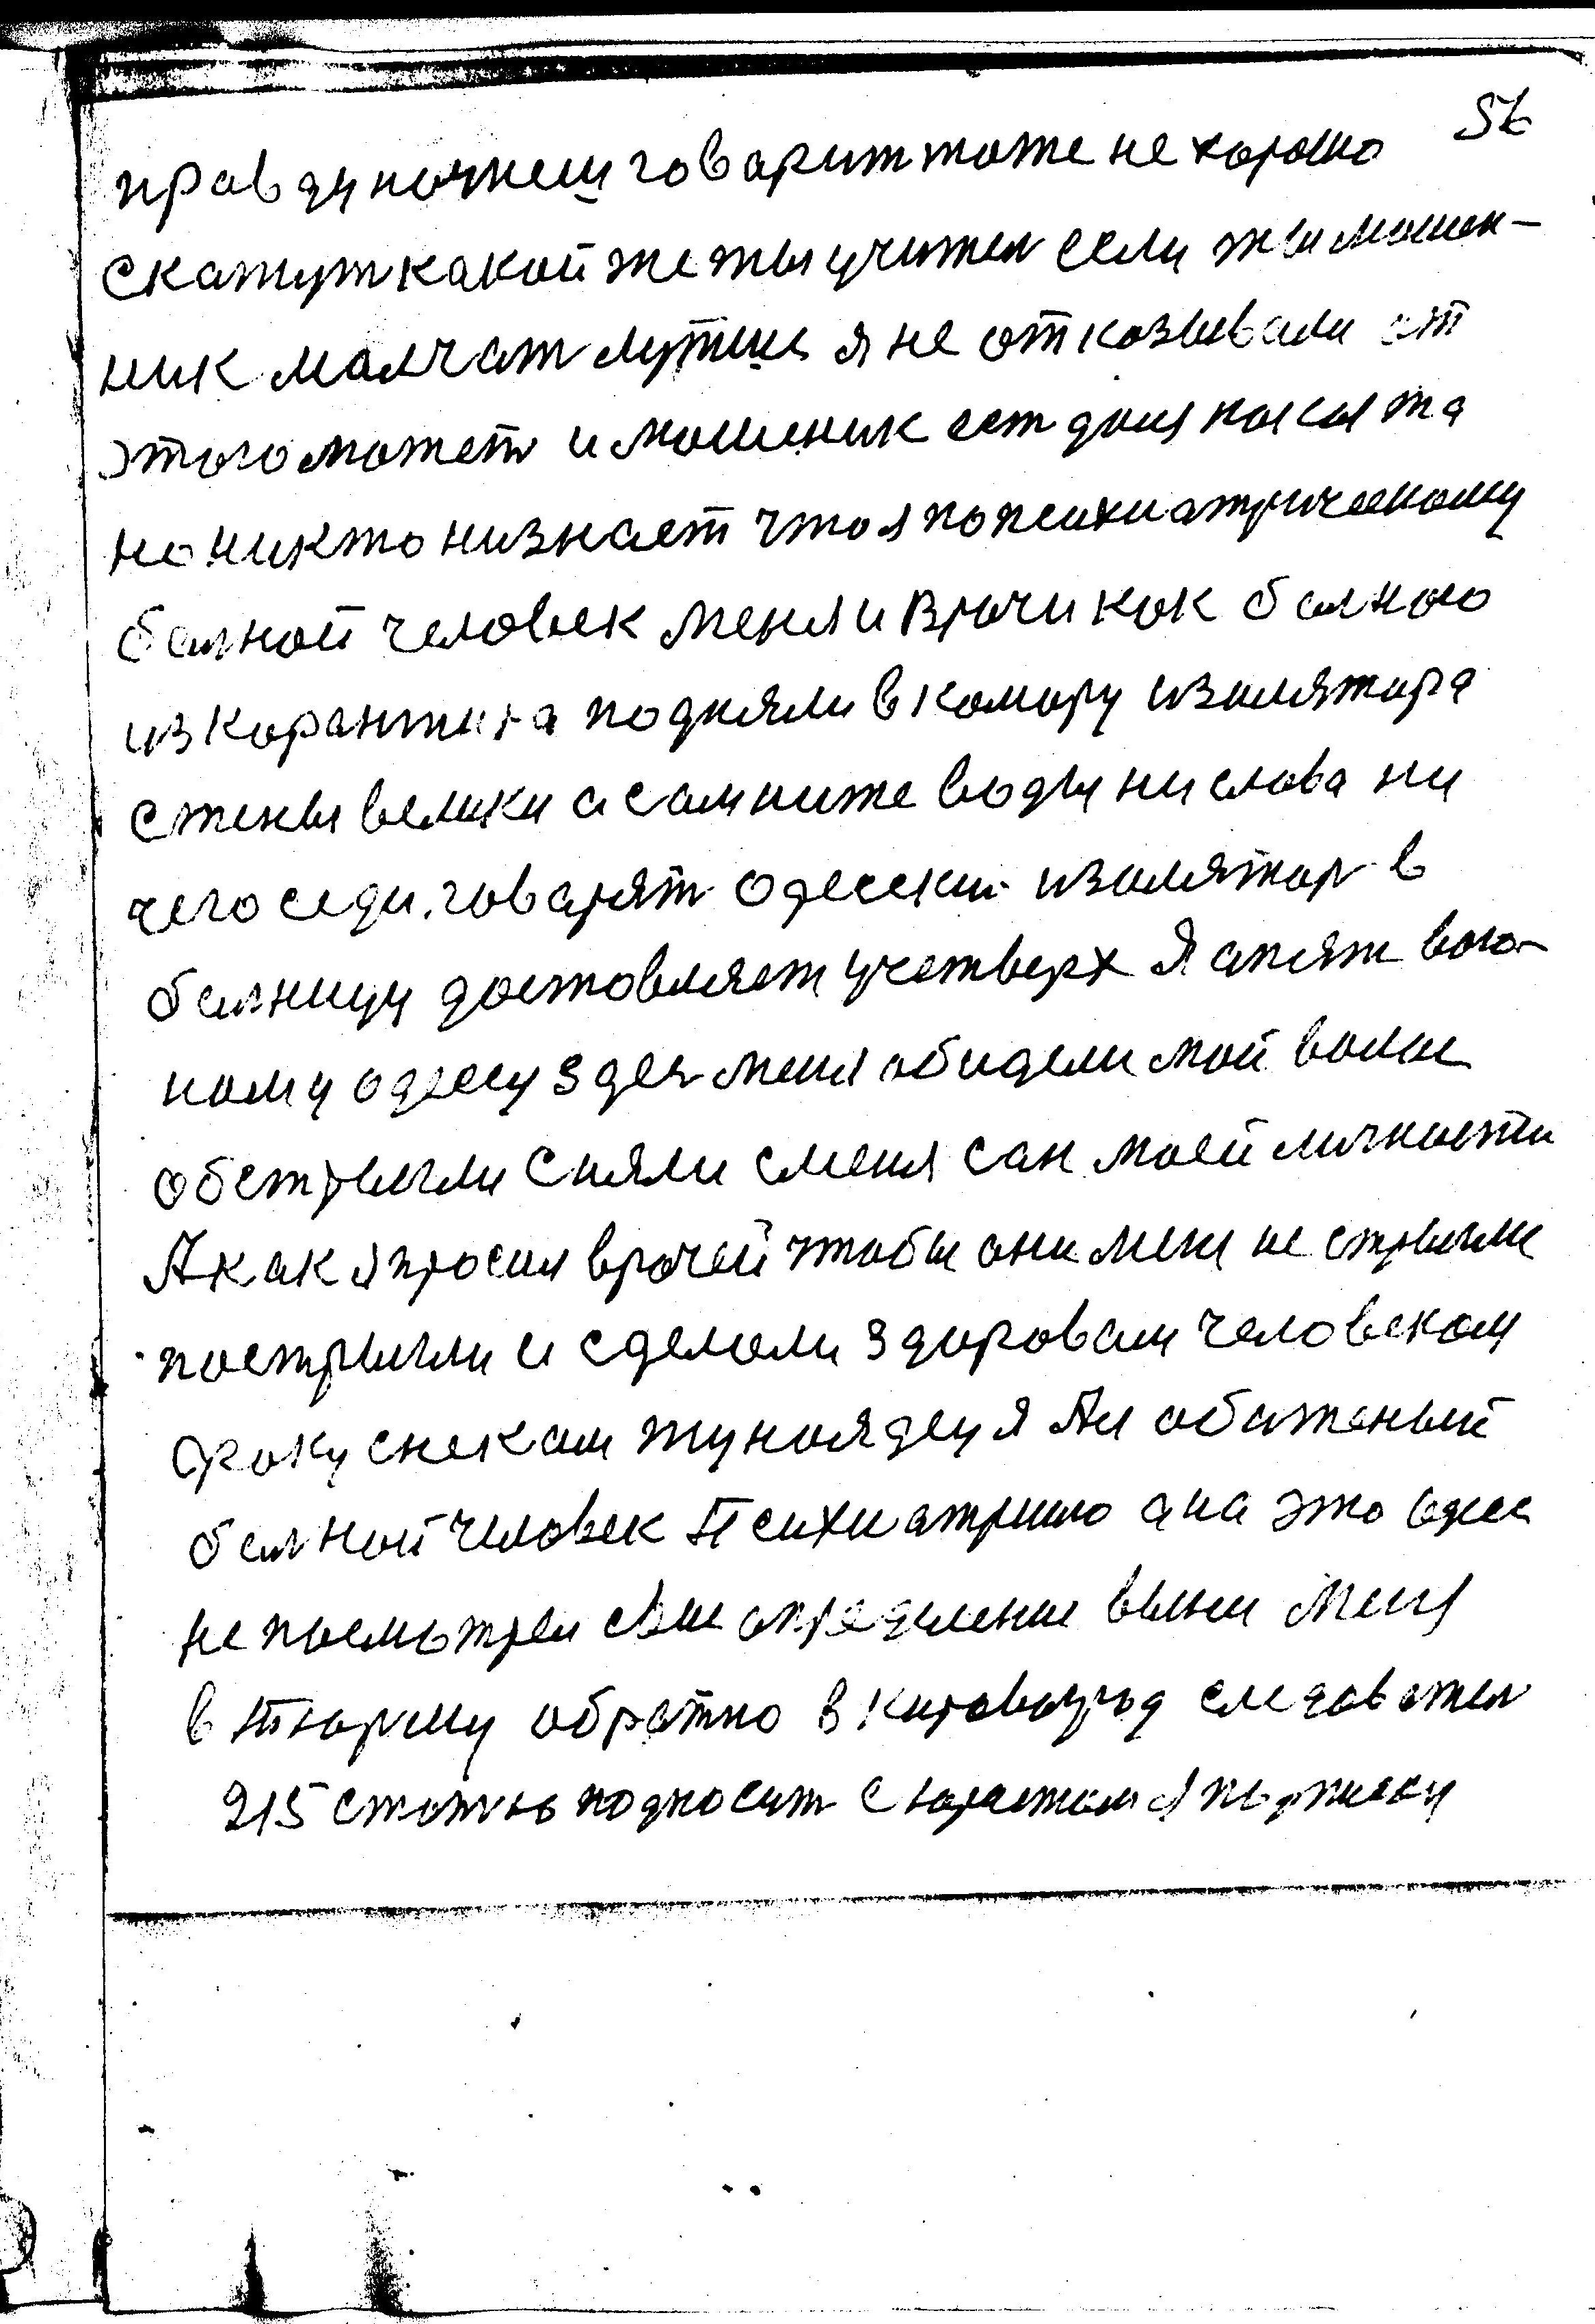 56
правду начнеш говарит тоже не харашо
скажут какой же ты учител если ты мошен-
ник малчат лутше я не отказывали от
этого может и мошеник ест доля
но никто низнает что я по психиатрическому
балной человек меня и врачи как балною
из карантина подняли в камару изалятара
стены велики а сам ниже воды ни слова ни
чего седи. говарят одесский изалятар в
балницу доставляет у четверх Я апят
одессу здес меня обидели мой волос
обстригли сняли с меня сан моей личности
А как я просил врачей чтобы они меня не стригли
постригли и сделали здоровам человекам
тунаядец я Ал обиженый
балной человек Психиатрию а на это одес
не посмотрел определение меня
в Тюрму обратно в Кировоград следовател
215 статью подносит с юристом я